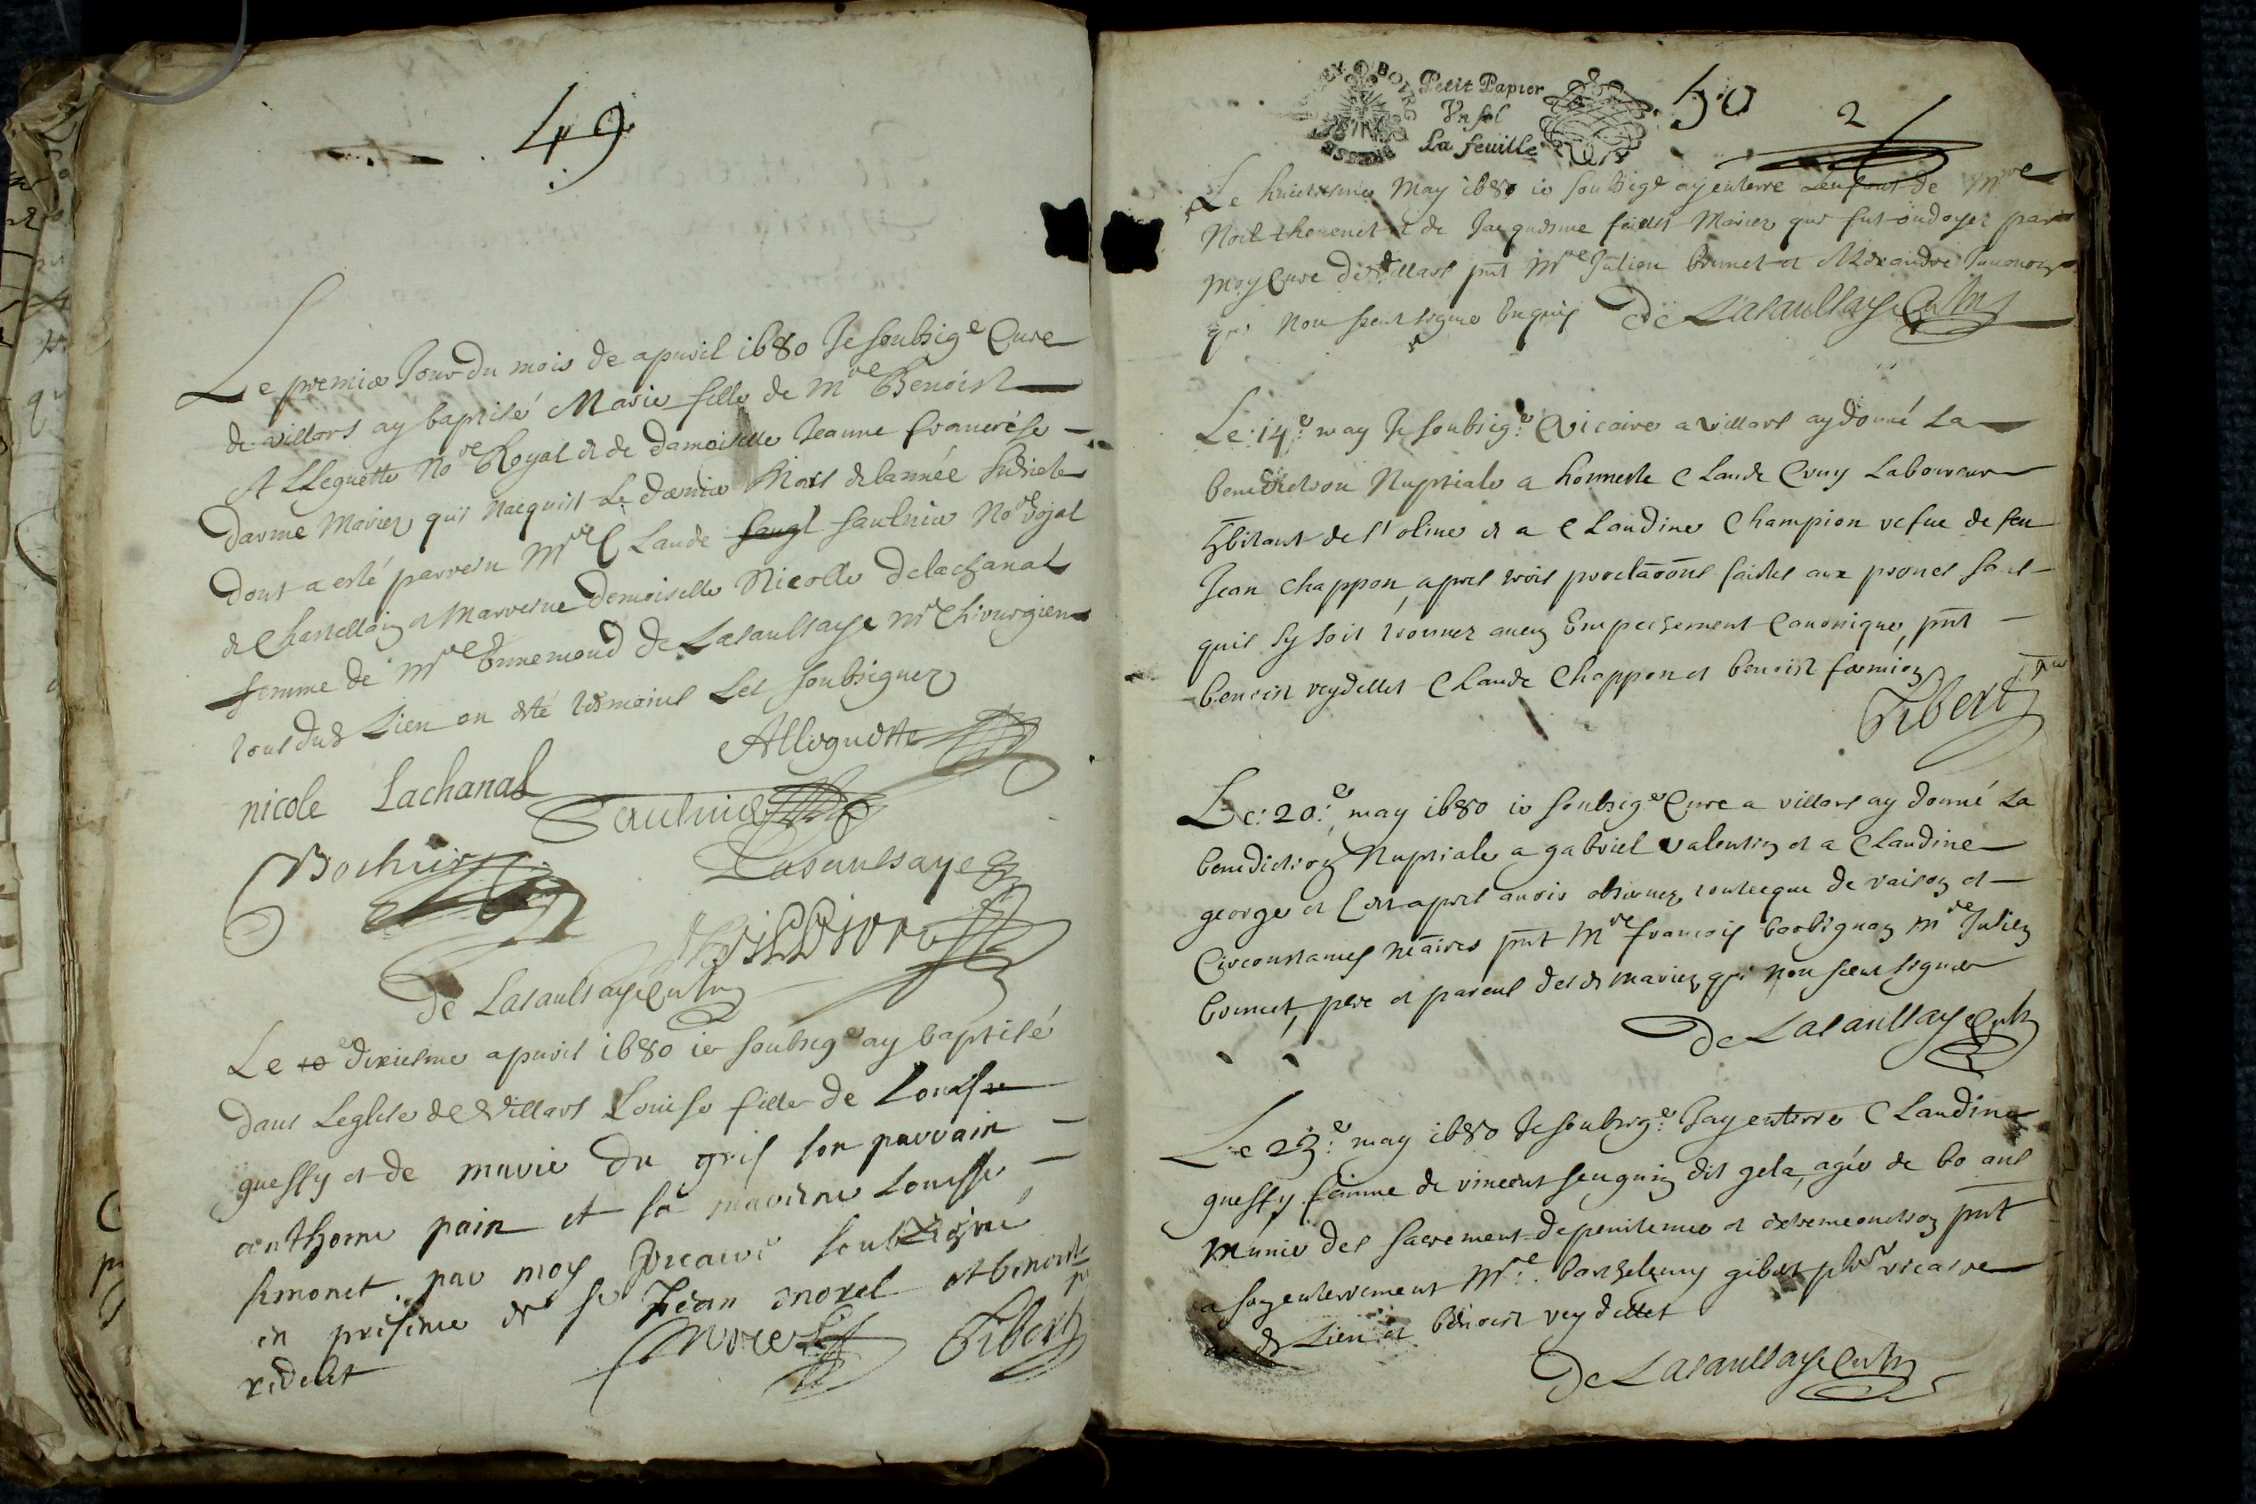 49
Le premier Jour du mois de apuril 1680 Je soubsigé Cure
de villars ay baptisé Marie fille de Mre Benoist
Alleguette Nore Royal et de damoiselle Jeanne francoise
darme Mariez qui nacquist Le dernier Mars de lannée
dont a esté parrein Mre Claude saulnier Nore royal
et Chastellain et Marresne demoiselle Nicolle delachanal
femme de Mre Ennemond de Lasaulsaye mre Chirurgien
tous dud Lieu on esté tesmoins Les soubsignez
Alleguette
nicole Lachanal
Saulnier
Bochin
Lasaulsaye
De Lasaulsaye Curé
Le dixiesme apuril 1680 ie soubsigé ay baptisé
dans Leglise de Villars Louise fille de Louis
guessy et de marie du gris son parrain
anthoine pain et sa maresne Louisse
simonet par moy Vicaire soubsigné
en presence de sr Jean morel et benoit
redelet
Morel
Gibert
Petit Papier
Vn sol
La feuille
50
2
Le huictiesme May 1680 ie soubsigé ay enterre Lenfant de Mre
Noel thouenet et de Jacquesme Mariez qui fut ondoyez par
moy Cure de Villars pnt Mre Julien bonnet et Alexandre
qui Non sceut signer Enquis De Lasaulsaye Curé
Le 14e may Je soubsigé Vicaire a Villars ay donné La
benediction Nuptiale a honneste Claude Cruy Laboureur
hbitant de st oline et a Claudine Champion vefue de feu
Jean Chappon, apres trois proclaons faictes aux prones sans
quil sy soit trouuez aucun Empeschement Canonique, pnt
benoist veydellet Claude Chappon et benoist formion
Gibert
Le 20e may 1680 ie soubsigé Cure a villars ay donné La
benediction Nuptiale a gabriel valentin et a Claudine
george et Cest apres auoir obseruez toutecque de raison et
Circonstances nécaires pnt Mre francois barbignon mre Julien
bonnet, pere et parens desd mariez qui Non sceut signer
De Lasaulsaye Curé
Le 23e may 1680 Je soubsigé Jay enterre Claudine
guessy femme de vincent seuguin dit gela, agée de 60 ans
Munie des sacrement de penitence et extremeonction pnt
a son enterrement Mre barthelemy gibert pbre vicaire
du d Lieu et benoist veydellet
De Lasaulsaye Curé